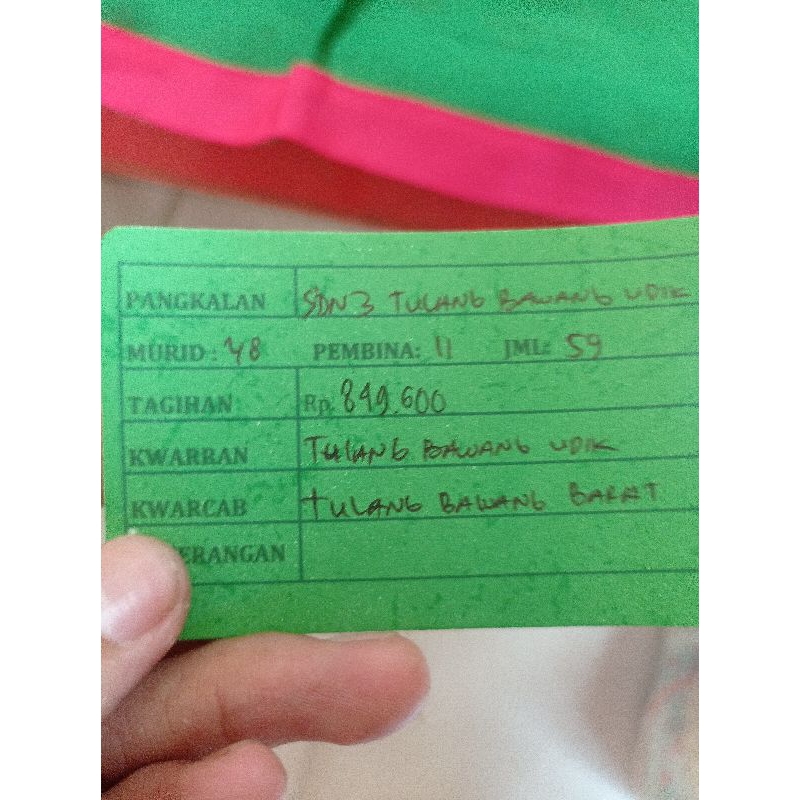 PANGKALAN SDN 3 TULANG BAWANG UDIK
MURID: 48 PEMBINA: 11 JML: 59
TAGIHAN Rp. 849.600
KWARRAN TULANG BAWANG UDIK
KWARCAB TULANG BAWANG BARAT
ERANGAN